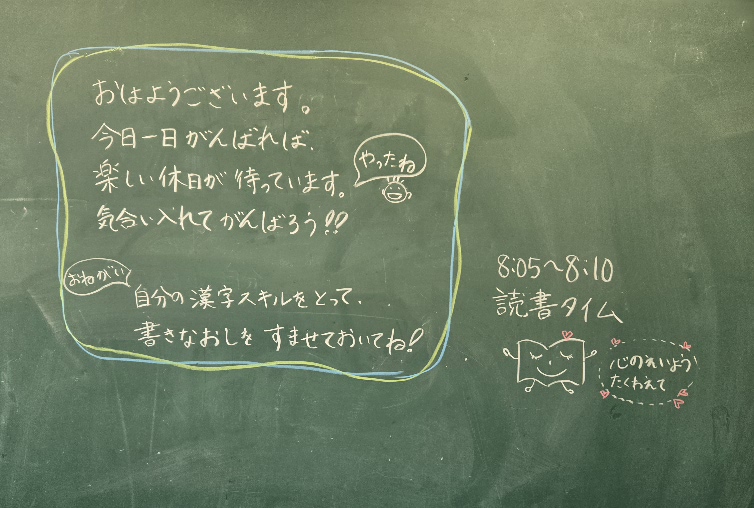 おはようございます。
今日一日がんばれば、
楽しい休日が待っています。
やったね
気合い入れてがんばろう!!
おねがい
自分の漢字スキルをとって、
書きなおしをすませておいてね!
8:05〜8:10
読書タイム
心のえいよう
たくわえて